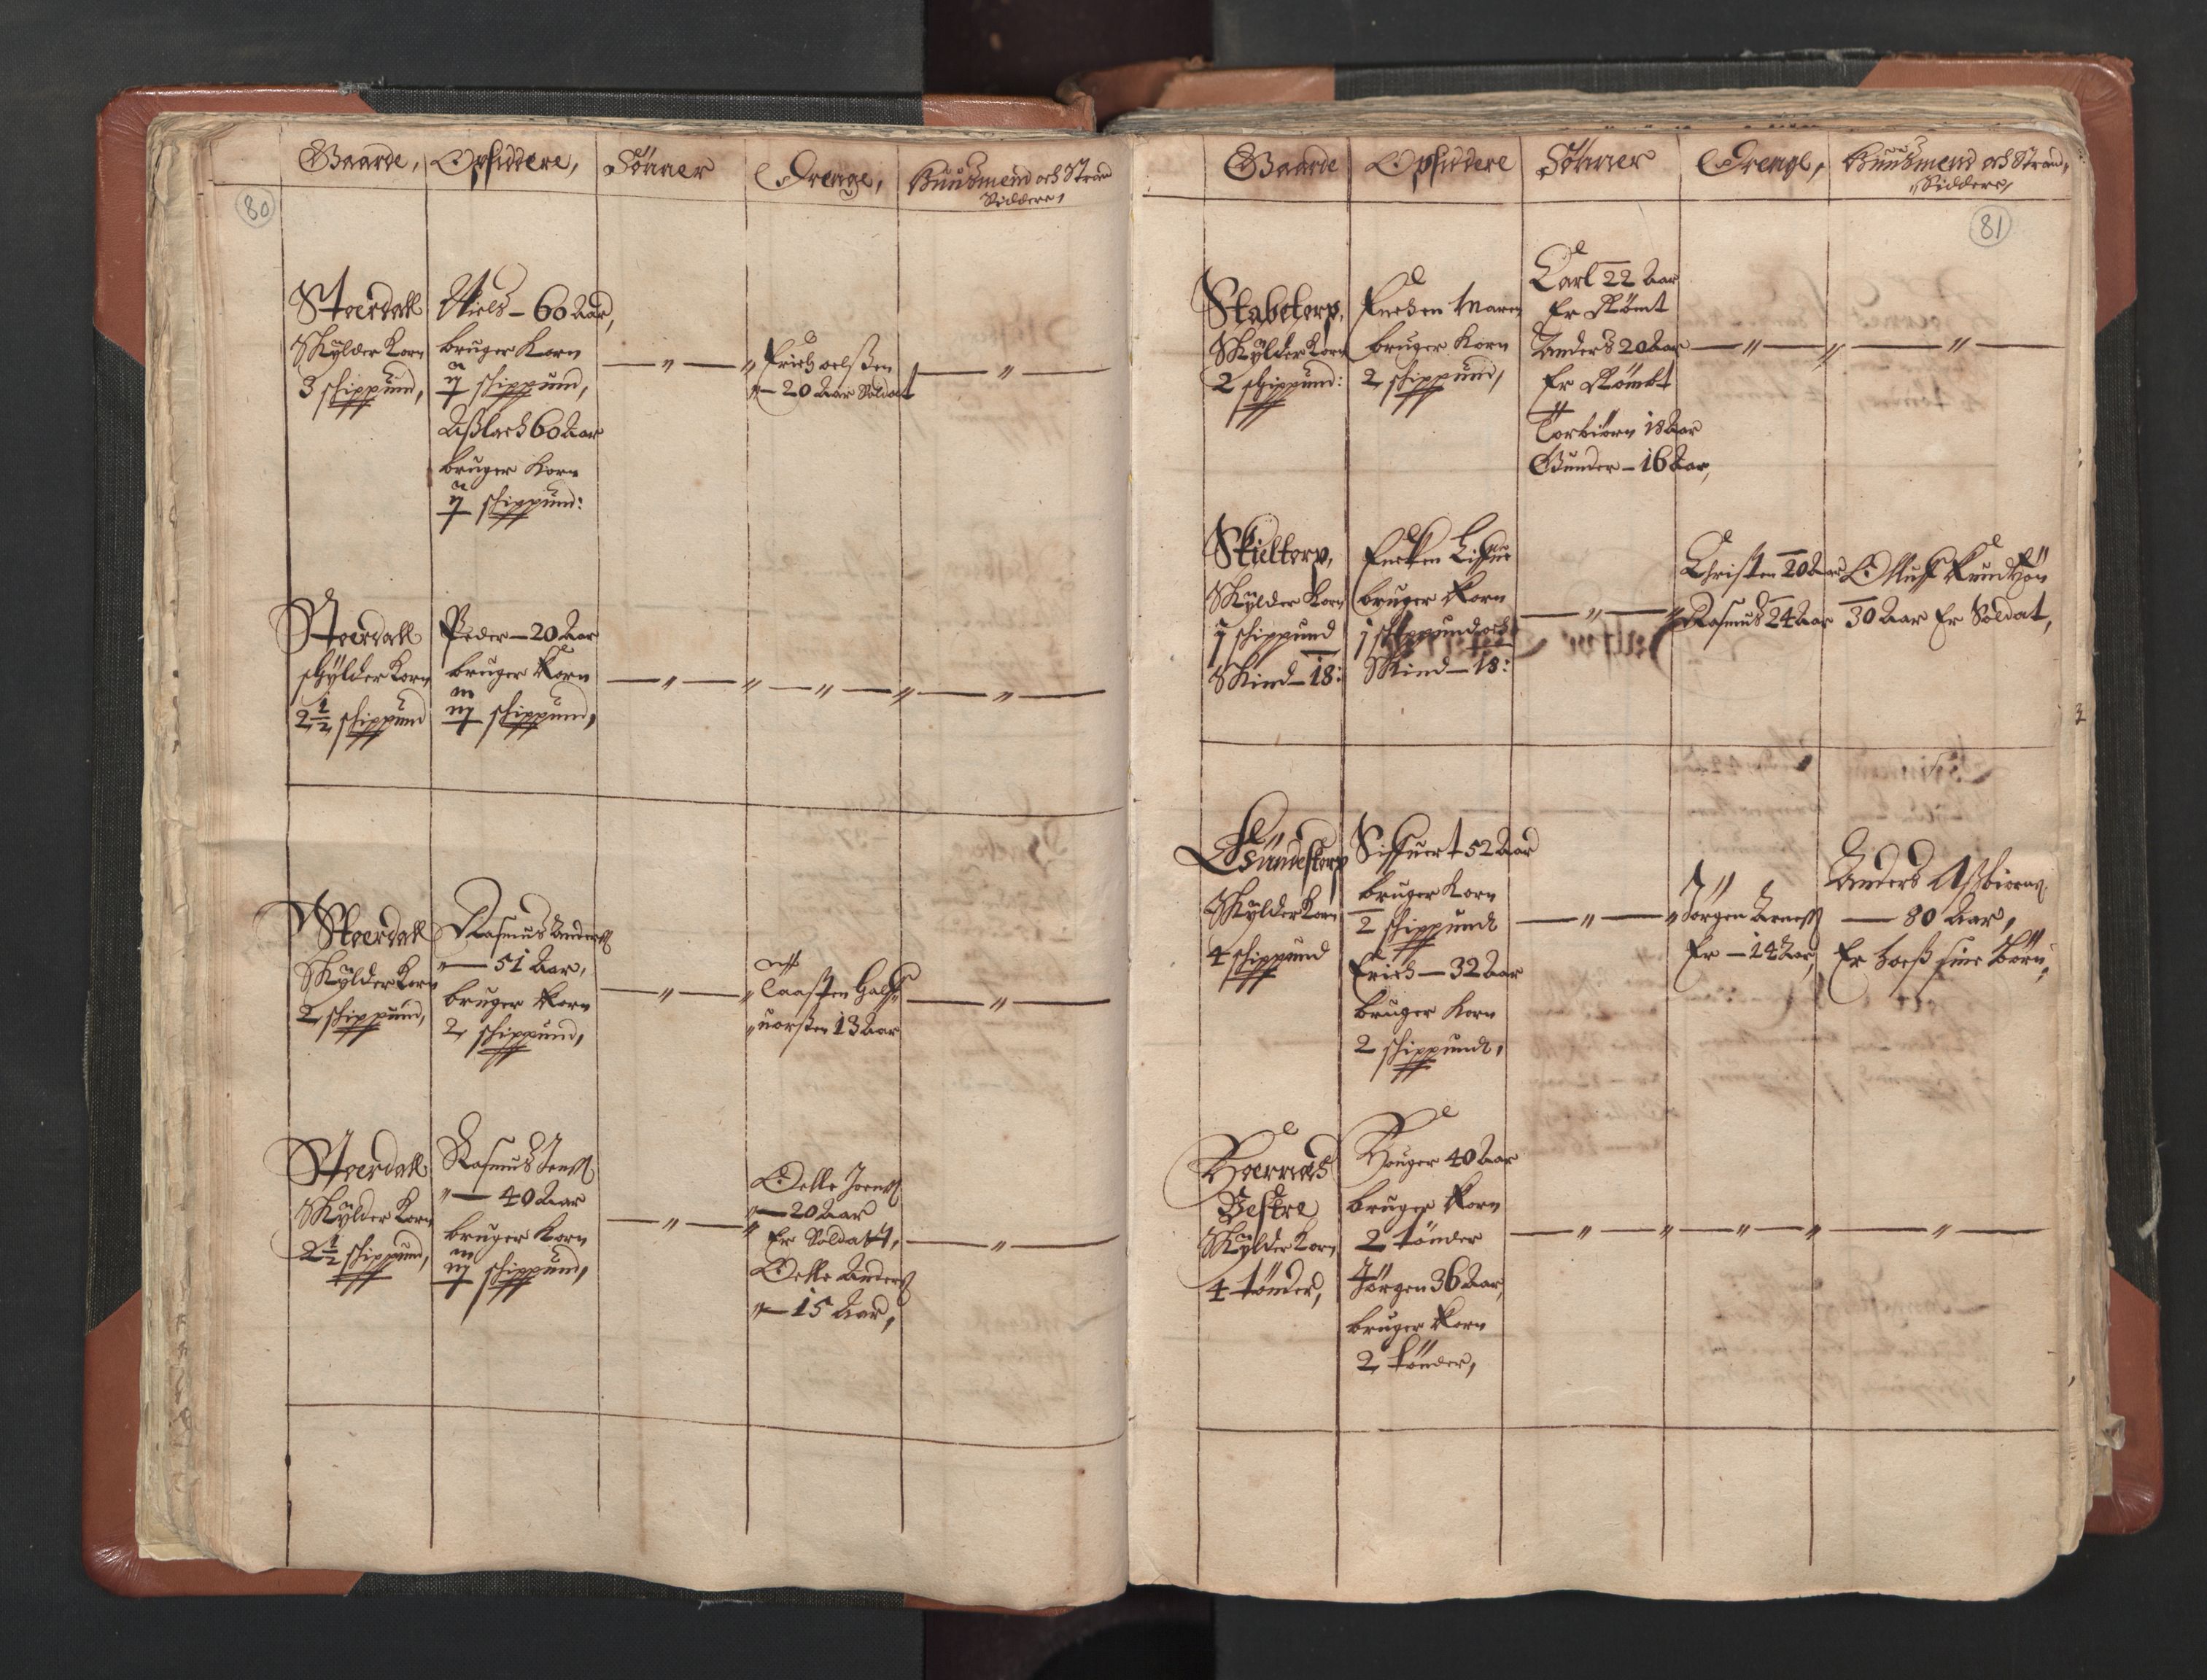 Gaarde, Opsiddere, Sönner Drenge, Huusmend och Strand
Siddere,
80
Stoerdall
Skylder Korn
3 schippund,
Niels - 60 Aar,
bruger Korn
schippund,
Aßlach 60 Aar
bruger Korn
schippund:
Erich oelßen
20 Aar Soldat
Stoerdall
schylder Korn
2 1/2 schippund
Peder - 20 Aar
bruger Korn
schippund,
Stoerdall
Skylder Korn
2 schippund,
Rasmus Anders
51 Aar,
bruger Korn
2 schippund,
Taasten Hal
uorßen 13 Aar
Stoerdall
Skylder Korn
2 1/2 schippund,
Rasmus Jens
40 Aar
bruger Korn
schippund,
Oelle Joens
20 Aar
Er Soldatt,
Oelle Anders
15 Aar,
Gaarde Opsiddere Sönner Drenge, Huusmend och Strand,
Siddere,
81
Stabetorp,
Skylder Korn
2 schippund:
Encken Maren
bruger Korn
2 schippund,
Carl 22 Aar
Er Römt
Anders 20 Aar
Er Römbt
Torbiörn 18 Aar
Gunder - 16 Aar,
Skieltorp,
Skylder Korn
1 schippund
Skind - 18:
Encken
bruger Korn
1 schippund och
Skind - 18:
Christen 20 Aar
Rasmus 24 Aar
Olluf
30 Aar Er Soldat,
Skylder Korn
4 schippund
Siffuert 52 Aar
bruger Korn
2 schippund
Erich - 32 Aar
bruger Korn
2 schippund,
Jörgen Arnes
Er - 14 Aar,
Anders Aßbiorns
80 Aar,
Er hoeß sine Börn,
Hoernes
Vestre
Skylder Korn
4 tönder,
Houger 40 Aar
bruger Korn
2 tönder
Jörgen 36 Aar,
bruger Korn
2 tönder,